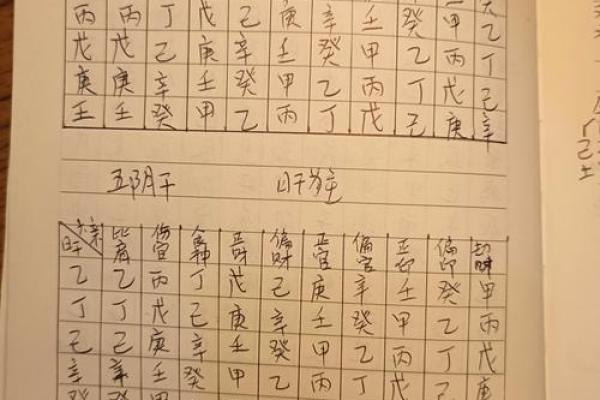 丙 丙 丁 戊 己 庚 辛 壬 癸 甲 乙
戊 戊 己 庚 辛 壬 癸 甲 乙 丙 丁
庚 庚 辛 壬 癸 甲 乙 丙 丁 戊 己
壬 壬 癸 甲 乙 丙 丁 戊 己 庚 辛
五阴干 日干为主
日干 比肩 伤官 食神 正财 偏财 正官 偏官 正印 偏印 劫财
乙 乙 丙 丁 戊 己 庚 辛 壬 癸 甲
丁 丁 戊 己 庚 辛 壬 癸 甲 乙 丙
己 己 庚 辛 壬 癸 甲 乙 丙 丁 戊
辛 辛 壬 癸 甲 乙 丙 丁 戊 己 庚
癸 癸 甲
己土